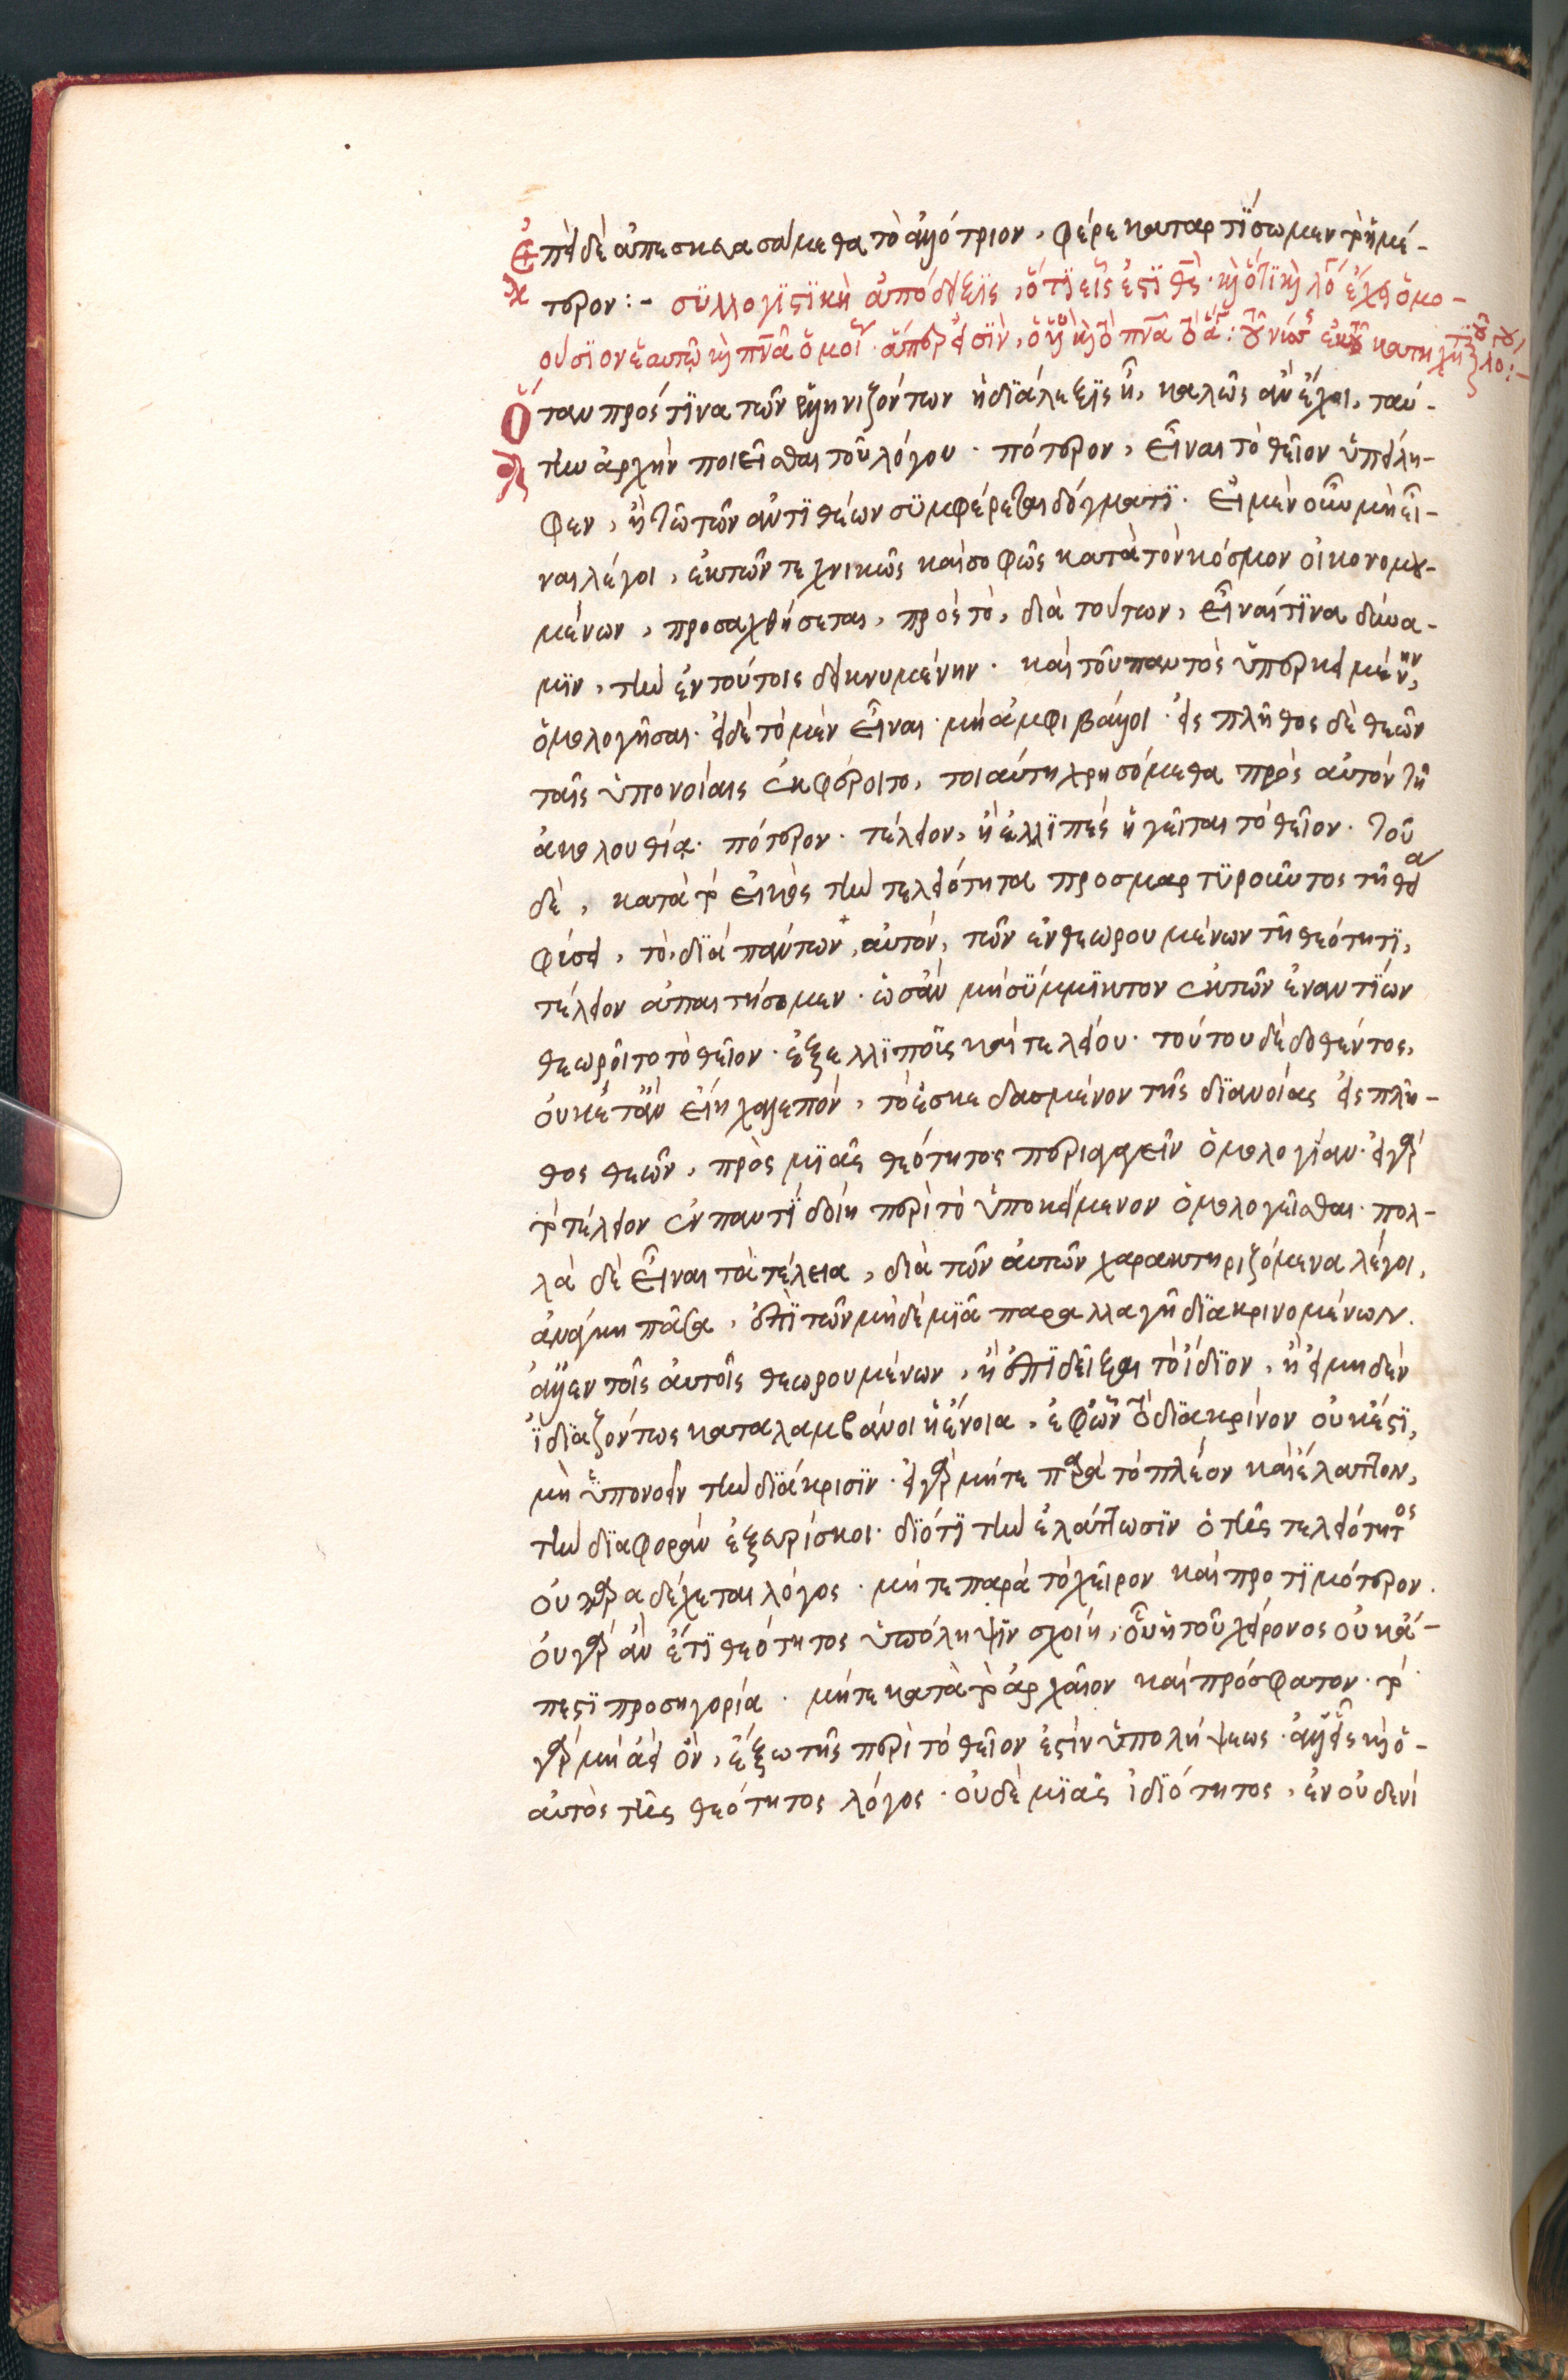 Ἐπεὶ δὲ ἀπεσκευασάμεθα τὸ ἀλλότριον, φέρε καταρτΐσωμεν τὸ ἡμέ-
τερον:- σϋλλογϊστϊκὴ ἀπόδειξϊς, ὅτϊ εἷς ἐστϊ θ̅ς̅· καὶ ὅτϊ καὶ λό ἔχει ὁμο-
ούσϊον ἑαυτῷ καὶ πν̅α̅ ὁμοί· ἅπερ εἰσϊν, ὁ υἱὸς καὶ τὸ πν̅α̅ τὸ ἅγ: τοῦ νύσ ἐκ τοῦ κατηχητϊκοῦ λό:-
Ὅταν πρός τϊνα τῶν ἑλληνιζόντων ἡ δϊάλεξϊς ᾖ, καλῶς ἂν ἔχοι, ταύ-
την ἀρχὴν ποιεῖσθαι τοῦ λόγου· πότερον, εἶναι τὸ θεῖον ὑπείλη-
φεν, ἢ τῷ τῶν ἀντϊθέων σϋμφέρεται δόγματϊ. Εἰ μὲν οὖν μὴ εἶ-
ναι λέγοι, ἐκ τῶν τεχνικῶς καὶ σοφῶς κατὰ τὸν κόσμον οἰκονομου-
μένων, προσαχθήσεται, πρὸς τὸ, διὰ τούτων, εἶναί τϊνα δύνα-
μϊν, τὴν ἐν τούτοις δεικνυμένην· καὶ τοῦ παντὸς ὑπερκειμένην,
ὁμολογῆσαι· εἰ δὲ τὸ μὲν εἶναι μὴ ἀμφιβάλλοι· εἰς πλῆθος δὲ θεῶν
ταῖς ὑπονοίαις ἐκφέροιτο, τοιαύτη χρησόμεθα πρὸς αὐτὸν τῇ
ἀκολουθίᾳ· πότερον· τέλειον, ἢ ἐλλϊπὲς ἡγεῖται τὸ θεῖον· τοῦ
δὲ, κατὰ τὸ εἰκὸς τὴν τελειότητα προσμαρτϋροῦντος τῇ θείᾳ
φύσει, τὸ, δϊὰ πάντων, αὐτόν, τῶν ἐνθεωρουμένων τῇ θεότητϊ,
τέλειον ἀπαιτήσομεν· ὡς ἂν μὴ σϋμμϊκτον ἐκ τῶν ἐναντΐων
θεωροῖτο τὸ θεῖον· ἐξ ἐλλϊποῦς καὶ τελείου· τούτου δὲ δοθέντος,
οὐκέτ' ἂν εἴη χαλεπὸν, τὸ ἐσκεδασμένον τῆς δϊανοίας εἰς πλῆ-
θος θεῶν, πρὸς μϊᾶς θεότητος περιαγαγεῖν ὁμολογίαν· εἰ γὰρ
τὸ τέλειον ἐν παντΐ δοίη περὶ τὸ ὑποκείμενον ὁμολογεῖσθαι· πολ-
λὰ δὲ εἶναι τὰ τέλεια, διὰ τῶν αὐτῶν χαρακτηριζόμενα λέγοι,
ἀνάγκη πᾶσα, ἐπϊ τῶν μηδεμϊᾷ παραλλαγῇ δϊακρινομένων.
ἀλλ' ἐν τοῖς αὐτοῖς θεωρουμένων, ἢ ἐπϊδεῖξαι τὸ ἴδϊον, ἢ εἰ μηδὲν
ϊδϊαζόντως καταλαμβάνοι ἡ ἔνοια, ἐφ' ὧν τὸ δϊακρίνον οὐκ ἔστϊ,
μὴ ὑπονοεῖν τὴν δϊάκρισϊν· εἰ γὰρ μήτε παρὰ τὸ πλέον καὶ ἔλαττον,
τὴν δϊαφορὰν ἐξευρίσκοι· δϊότϊ τὴν ἐλάττωσϊν ὁ τῆς τελειότητος
οὐ παραδέχεται λόγος· μήτε παρὰ τὸ χεῖρον καὶ προτϊμότερον.
οὐ γὰρ ἂν ἔτϊ θεότητος ὑπόληψϊν σχοίη, οὗ ἡ τοῦ χείρονος οὐκ ἄ-
πεστϊ προσηγορία· μήτε κατὰ τὸ ἀρχαῖον καὶ πρόσφατον· τὸ
γὰρ μὴ ἀεὶ ὂν, ἔξω τῆς περὶ τὸ θεῖον ἐστὶν ὑπολήψεως· ἀλλ' εἷς καὶ ὁ
αὐτὸς τῆς θεότητος λόγος· οὐδὲ μϊᾶς ἰδϊότητος, ἐν οὐδενὶ